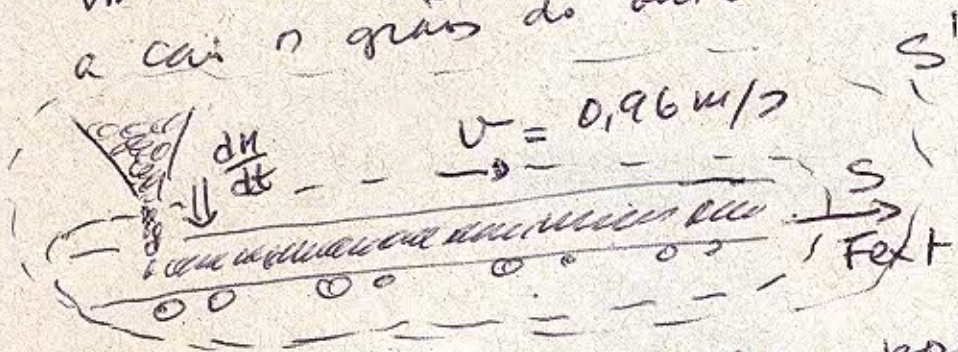 a cai n grãos do
S'
dM
dt
v = 0,96 m/s
S
Fext